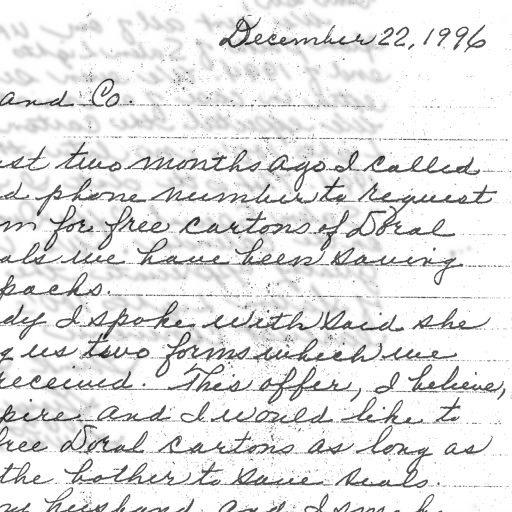 December 22, 1996
and Co.
st two months ago I called
d phone number to request
m for free cartons of Doral
als we have been saving
packs.
dy I spoke with said she
g us two forms which we
received. This offer, I believe,
pire and I would like to
free Doral cartons as long as
the bother to save seals.
my husband and I smoke